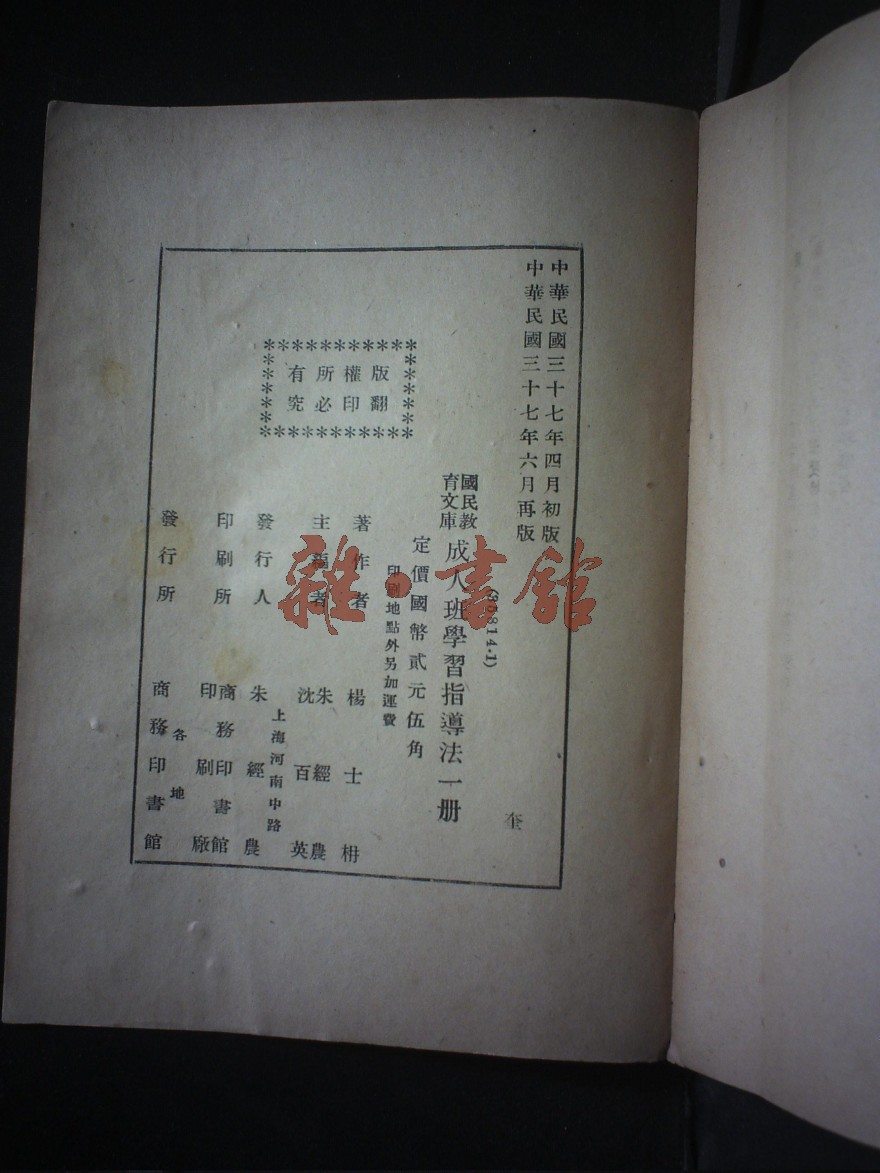 中華民國三十七年四月初版
中華民國三十七年六月再版
(95814·1)
國民教育文庫 成人班學習指導法一册
奎
定價國幣貳元伍角
印刷地點外另加運費
版權所有
翻印必究
著作者 楊士枬
主編者 朱經農 沈百英
發行人 朱經農
上海河南中路
印刷所 商務印書館印刷廠
發行所 各地商務印書館
雜·書館